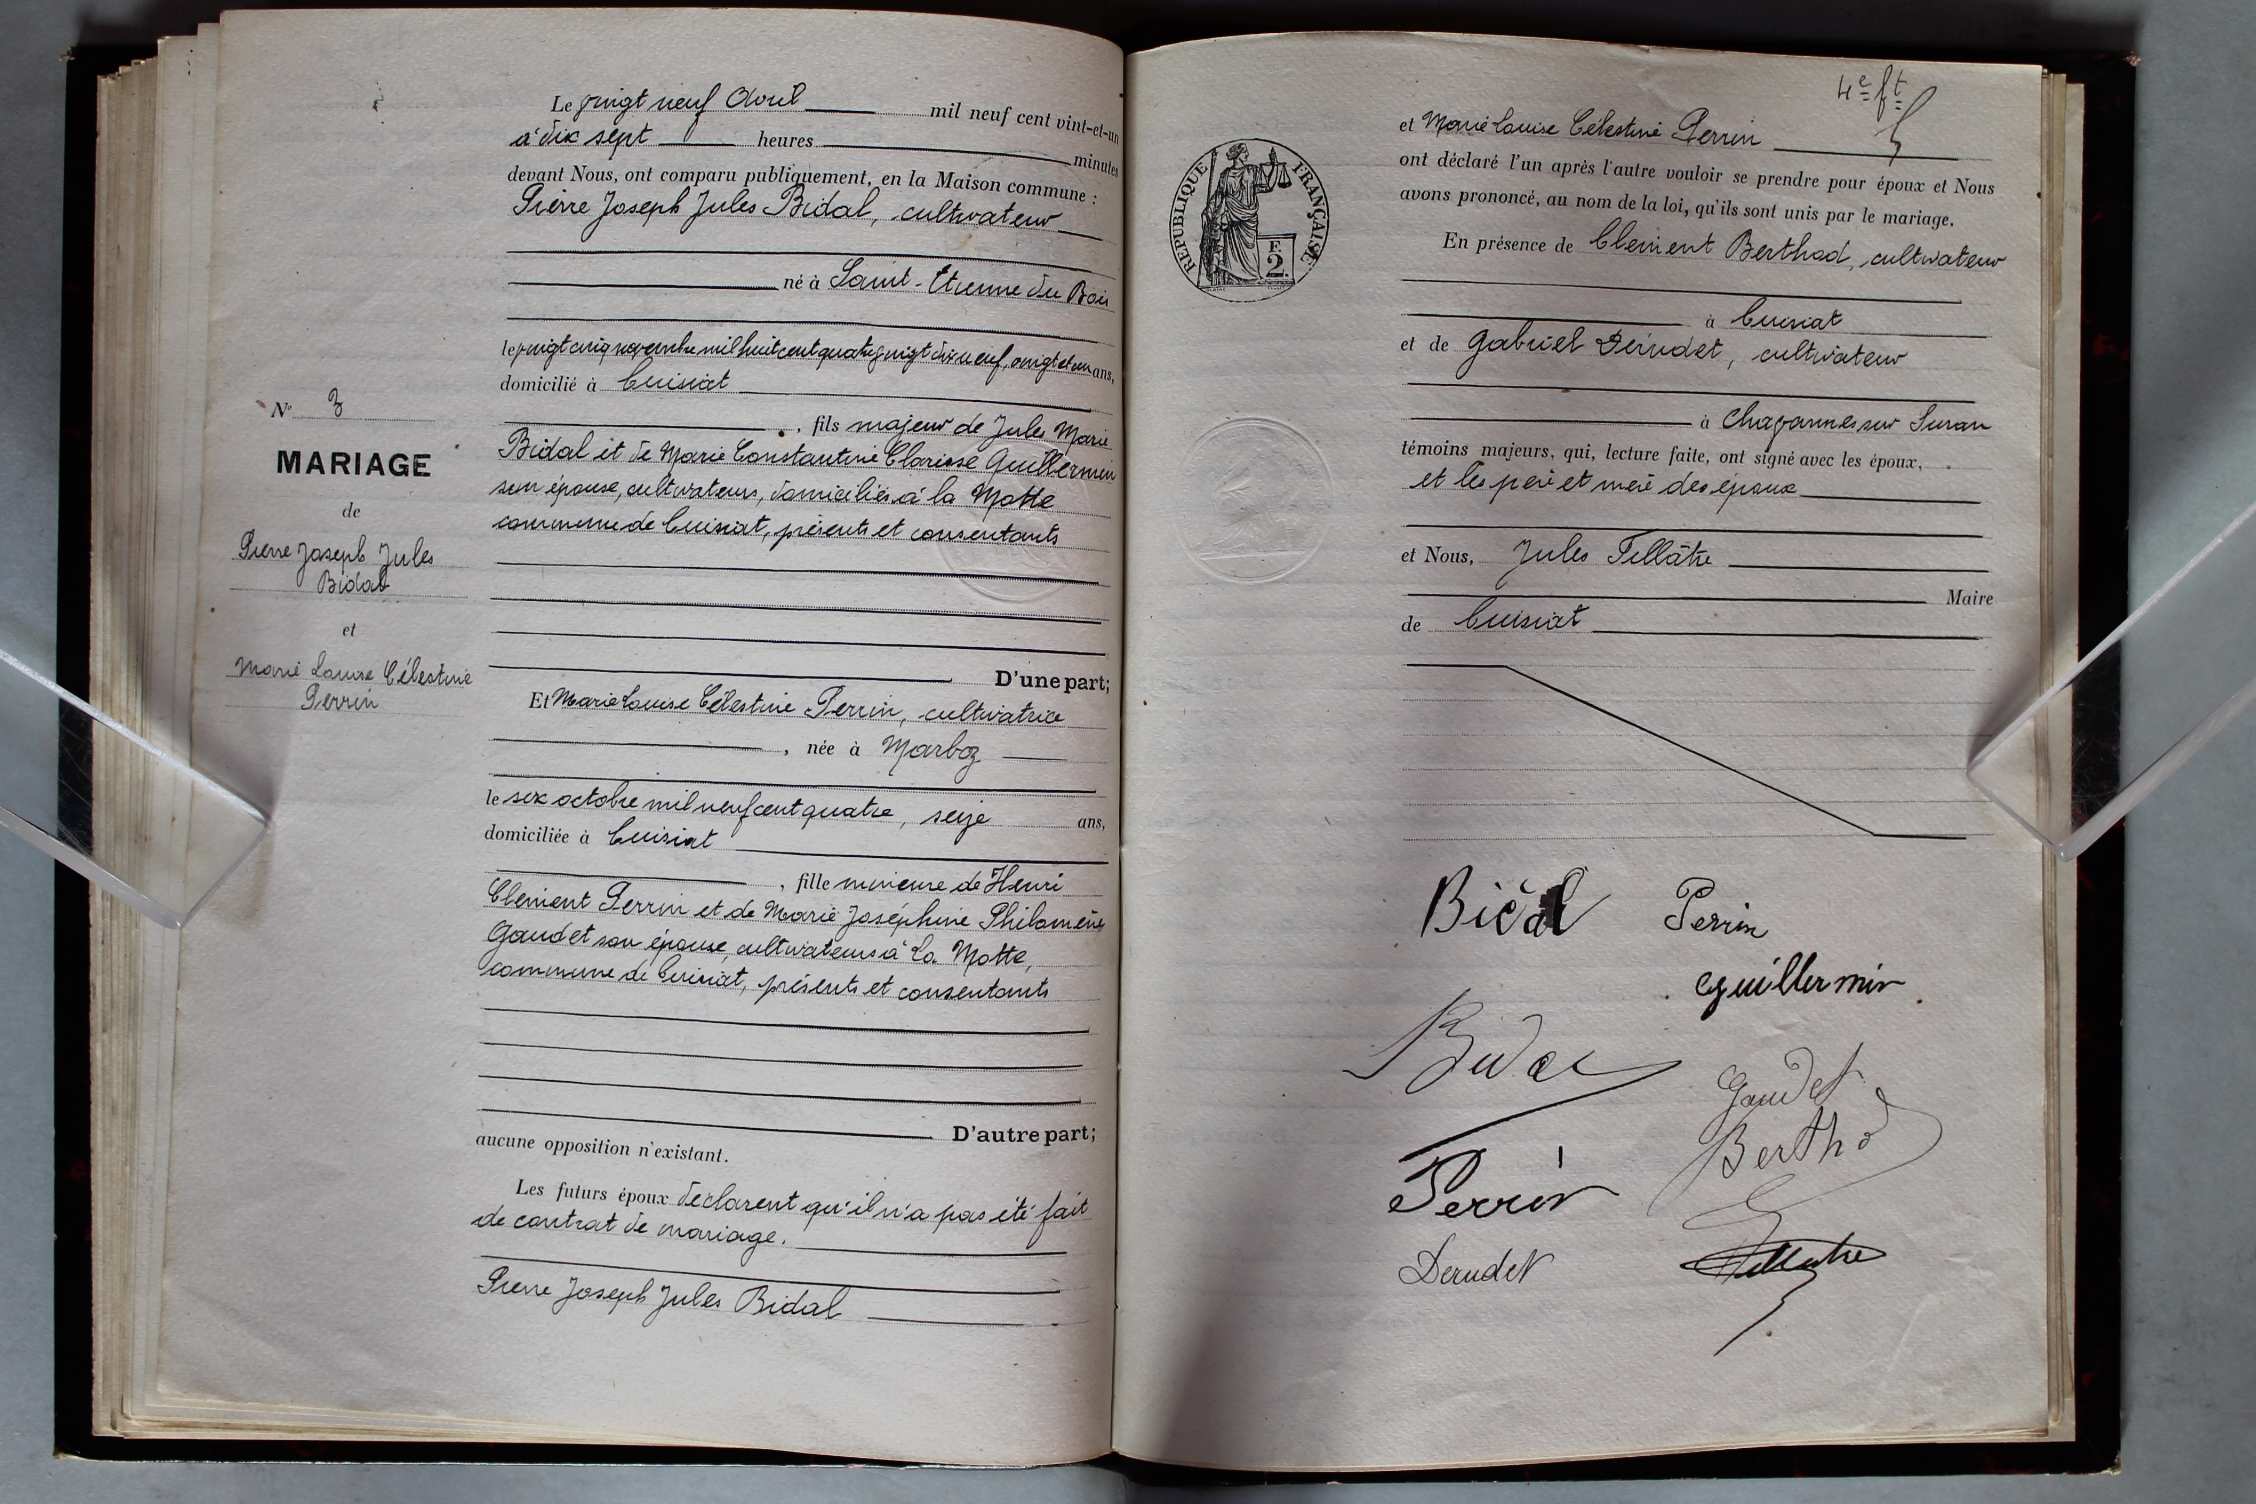 Le vingt neuf Avril mil neuf cent vint-et-un
à dix sept heures minutes
devant Nous, ont comparu publiquement, en la Maison commune :
Pierre Joseph Jules Bidal, cultivateur
né à Saint-Etienne du Bois
le vingt cinq novembre mil huit cent quatre vingt dix neuf, vingt et un ans,
domicilié à Cuisiat
, fils majeur de Jules Marie
Bidal et de Marie Constantine Clarisse Guillermin
son épouse, cultivateurs, domiciliés à la Motte
commune de Cuisiat, présents et consentants
D'une part;
Et Marie Louise Célestine Perrin, cultivatrice
, née à Marboz
le six octobre mil neuf cent quatre, seize ans,
domiciliée à Cuisiat
, fille mineure de Henri
Clément Perrin et de Marie Joséphine Philomène
Gaudet son épouse, cultivateurs à La Motte,
commune de Cuisiat, présents et consentants
D'autre part;
aucune opposition n'existant.
Les futurs époux déclarent qu'il n'a pas été fait
de contrat de mariage.
Pierre Joseph Jules Bidal
N° 3
MARIAGE
de
Pierre Joseph Jules
Bidal
et
Marie Louise Célestine
Perrin
4e ft
et Marie Louise Célestine Perrin
ont déclaré l'un après l'autre vouloir se prendre pour époux et Nous
avons prononcé, au nom de la loi, qu'ils sont unis par le mariage.
En présence de Clément Berthod, cultivateur
à Cuisiat
et de Gabriel Derudet, cultivateur
à Chavannes sur Suran
témoins majeurs, qui, lecture faite, ont signé avec les époux,
et les père et mère des époux
et Nous, Jules Tillâtre
Maire
de Cuisiat
RÉPUBLIQUE FRANÇAISE
F.
2
Bidal Perrin
Guillermin
Bidal
Gaudet
Berthod
Perrin
Derudet Tillatre